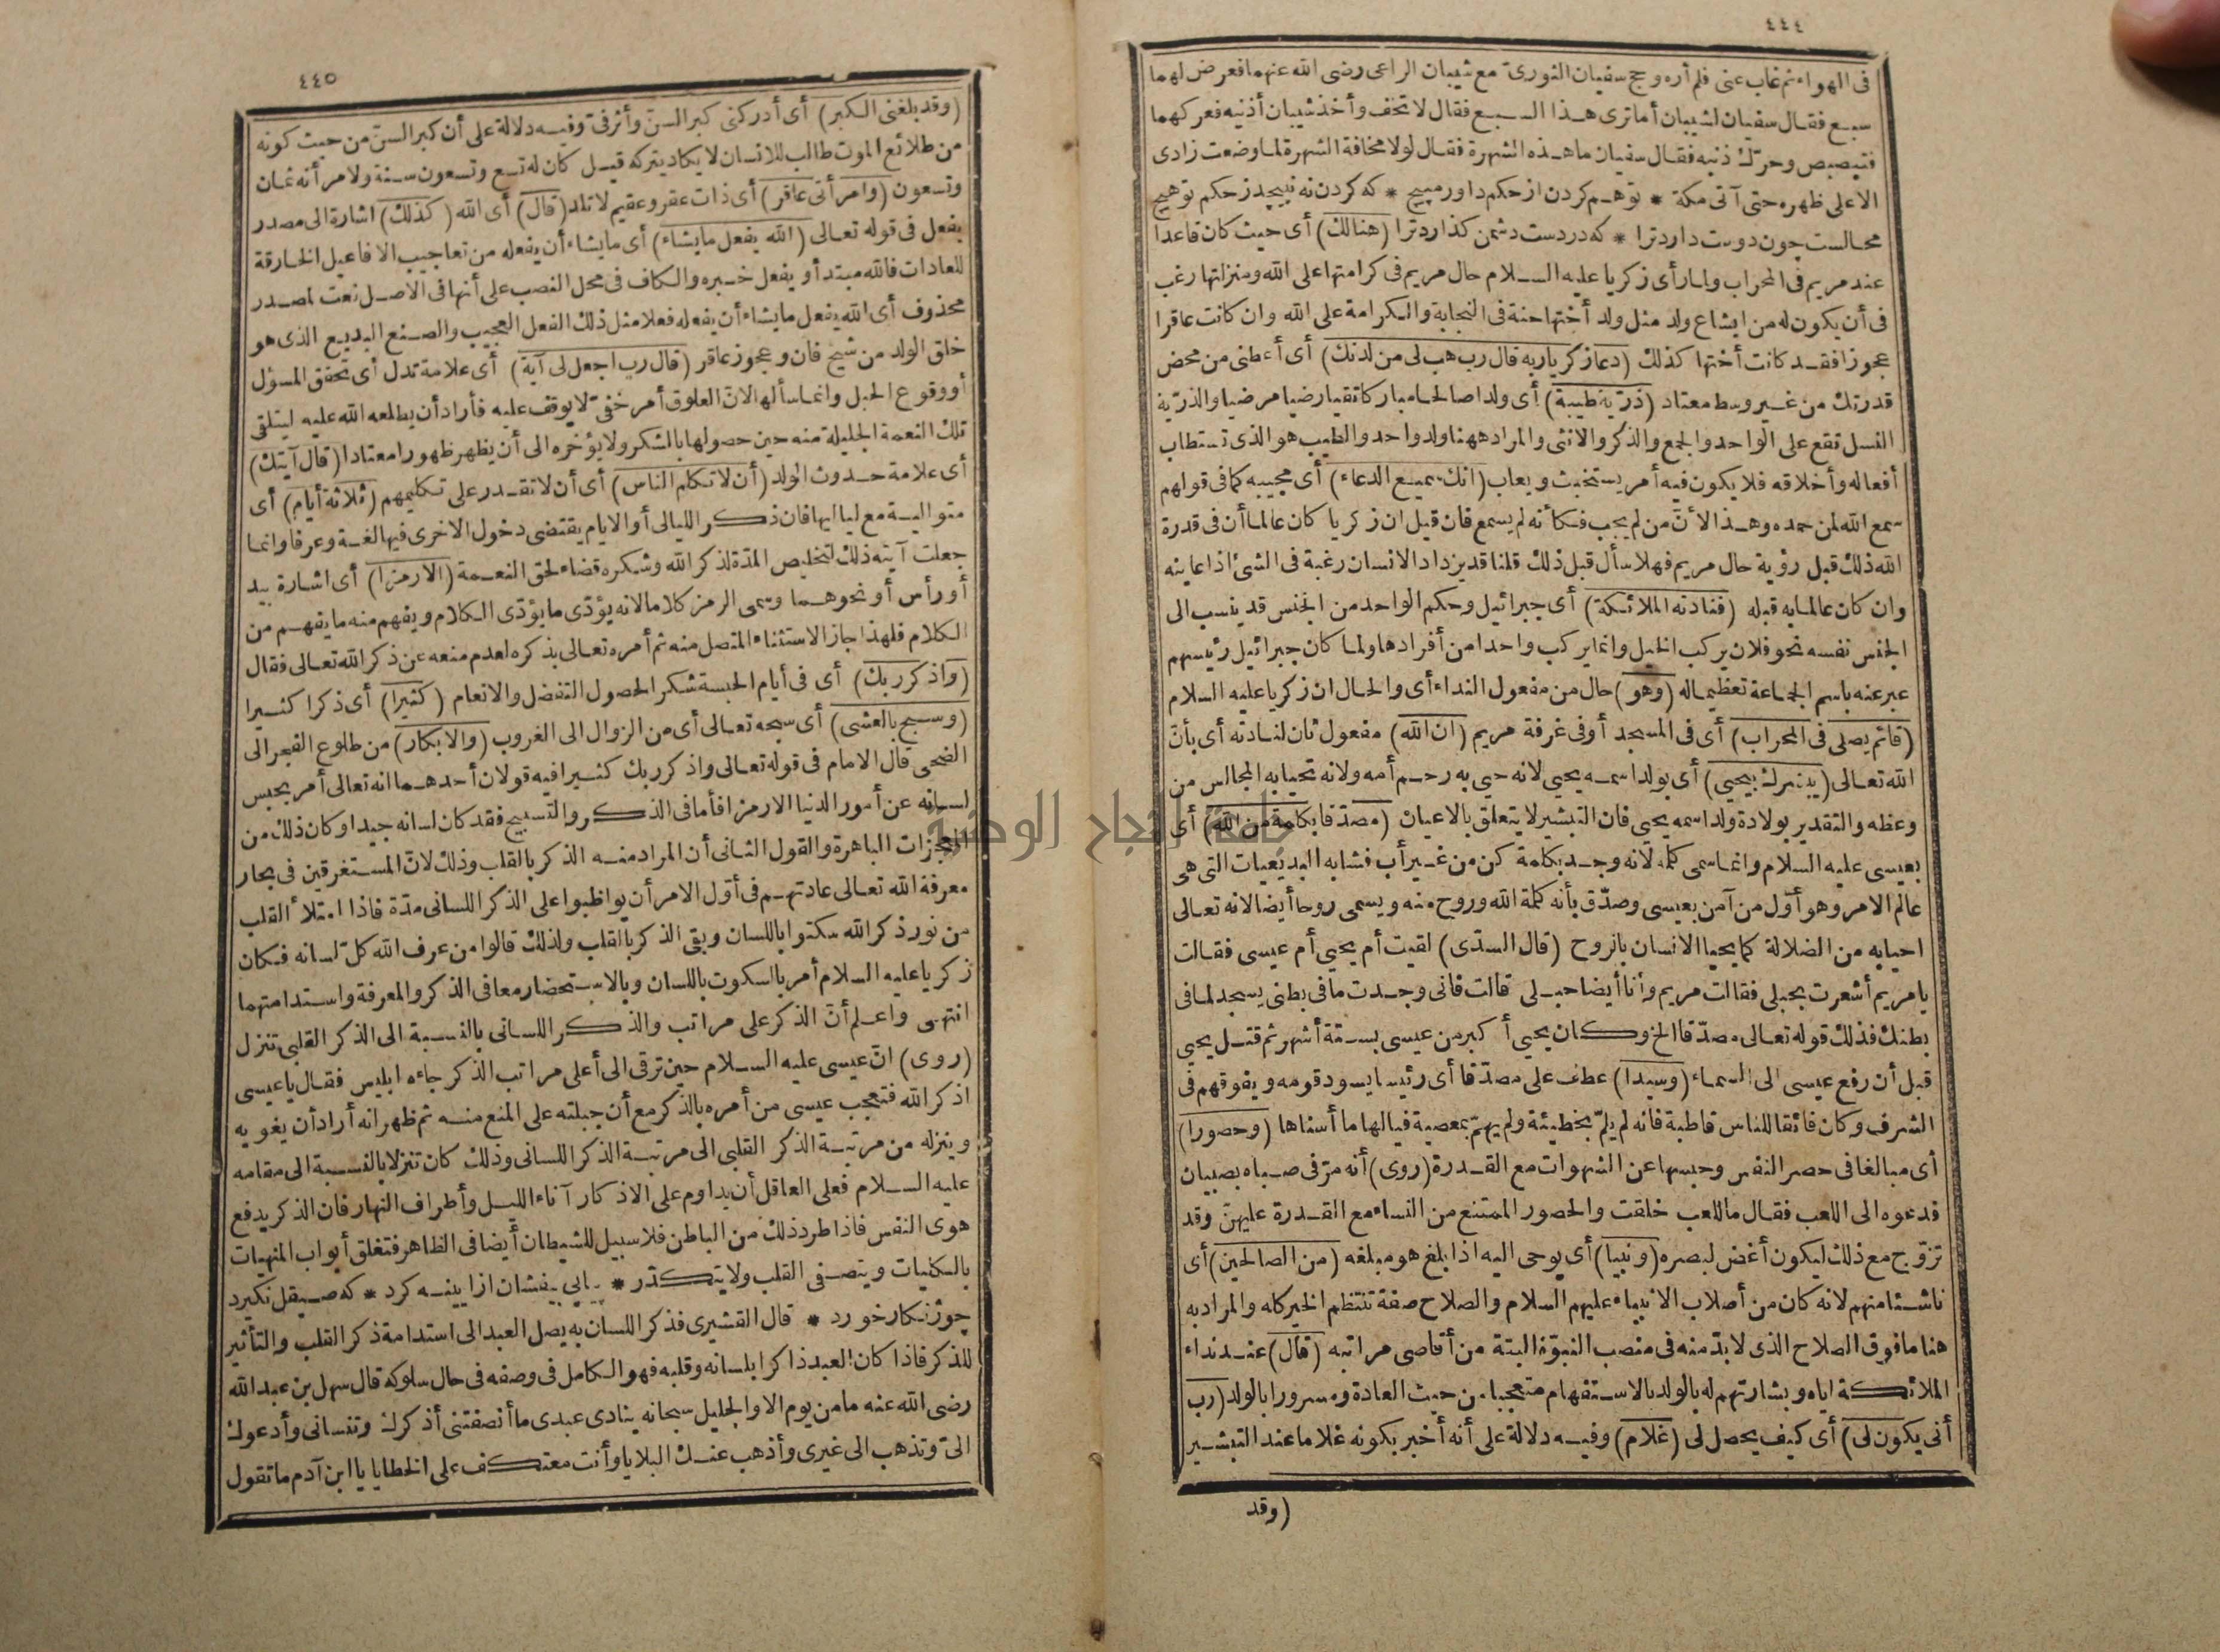 ٤٤٤
فى الهواء ثم غاب عنى فلم أره وحج سفيان الثورى مع شيبان الراعى رضى الله عنهما فعرض لهما
سبع فقال سفيان لشيبان أما ترى هذا السبع فقال لا تخف وأخذ شيبان أذنيه فعركهما
فتبصبص وحرّك ذنبه فقال سفيان ما هذه الشهرة فقال لولا مخافة الشهرة لما وضعت زادى
الا على ظهره حتى آتى مكة * تو هم كردن از حكم داور مپيچ * كه كردن نه پيچد ز حكم تو هيچ
محالست چون دوست دارد ترا * كه در دست دشمن كذارد ترا (هنالك) أى حيث كان قاعدا
عند مريم فى المحراب ولما رأى زكريا عليه السلام حال مريم فى كرامتها على الله ومنزلتها رغب
فى أن يكون له من ايشاع ولد مثل ولد أختها حنة فى النجابة والكرامة على الله وان كانت عاقرا
عجوزا فقد كانت أختها كذلك (دعا زكريا ربه قال رب هب لى من لدنك) أى أعطنى من محض
قدرتك من غير وسط معتاد (ذرّية طيبة) أى ولدا صالحا مباركا تقيا رضيا مرضيا والذرّية
النسل تقع على الواحد والجمع والذكر والانثى والمراد ههنا ولد واحد والطيب هو الذى تستطاب
أفعاله وأخلاقه فلا يكون فيه أمر يستخبث ويعاب (انك سميع الدعاء) أى مجيبه كما فى قولهم
سمع الله لمن حمده وهذا لأنّ من لم يجب فكأنه لم يسمع فان قيل ان زكريا كان عالما أن فى قدرة
الله ذلك قبل رؤية حال مريم فهلا سأل قبل ذلك قلنا قد يزداد الانسان رغبة فى الشئ اذا عاينه
وان كان عالما به قبله (فنادته الملائكة) أى جبرائيل وحكم الواحد من الجنس قد ينسب الى
الجنس نفسه نحو فلان يركب الخيل وانما يركب واحدا من أفرادها ولما كان جبرائيل رئيسهم
عبر عنه باسم الجماعة تعظيما له (وهو) حال من مفعول النداء أى والحال ان زكريا عليه السلام
(قائم يصلى فى المحراب) أى فى المسجد أو فى غرفة مريم (ان الله) مفعول ثان لنادته أى بأنّ
الله تعالى (يبشرك بيحيى) أى بولد اسمه يحيى لانه حيى به رحم أمه ولانه تحيا به المجالس من
وعظه والتقدير بولادة ولد اسمه يحيى فان التبشير لا يتعلق بالاعيان (مصدّقا بكلمة من الله) أى
بعيسى عليه السلام وانما سمى كلمة لانه وجد بكلمة كن من غير أب فشابه البديعيات التى هى
عالم الامر وهو أوّل من آمن بعيسى وصدّق بأنه كلمة الله وروح منه ويسمى روحا أيضا لانه تعالى
احيا به من الضلالة كما يحيا الانسان بالروح (قال السدّى) لقيت أم يحيى أم عيسى فقالت
يا مريم أشعرت بحبلى فقالت مريم وأنا أيضا حبلى قالت فانى وجدت ما فى بطنى يسجد لما فى
بطنك فذلك قوله تعالى مصدّقا الخ وكان يحيى أكبر من عيسى بستة أشهر ثم قتل يحيى
قبل أن رفع عيسى الى السماء (وسيدا) عطف على مصدّقا أى رئيسا يسود قومه ويفوقهم فى
الشرف وكان فائقا للناس قاطبة فانه لم يلمّ بخطيئة ولم يهتمّ بمعصية فيالها ما أسناها (وحصورا)
أى مبالغا فى حصر النفس وحبسها عن الشهوات مع القدرة (روى) أنه مرّ فى صباه بصبيان
فدعوه الى اللعب فقال ما للعب خلقت والحصور الممتنع من النساء مع القدرة عليهنّ وقد
تزوّج مع ذلك ليكون أغض لبصره (ونبيا) أى يوحى اليه اذا بلغ هو مبلغه (من الصالحين) أى
ناشئا منهم لانه كان من أصلاب الانبياء عليهم السلام والصلاح صفة تنتظم الخير كله والمراد به
هنا ما فوق الصلاح الذى لا بدّ منه فى منصب النبوّة البتة من أقاصى مراتبه (قال) عند نداء
الملائكة اياه وبشارتهم له بالولد بالاستفهام متعجبا من حيث العادة ومسرورا بالولد (رب
أنى يكون لى) أى كيف يحصل لى (غلام) وفيه دلالة على أنه أخبر بكونه غلاما عند التبشير
(وقد
٤٤٥
(وقد بلغنى الكبر) أى أدركنى كبر السنّ وأثر فىّ وفيه دلالة على أن كبر السنّ من حيث كونه
من طلائع الموت طالب للانسان لا يكاد يتركه قيل كان له تسع وتسعون سنة ولامرأته ثمان
وتسعون (وامرأتى عاقر) أى ذات عقر وعقيم لا تلد (قال) أى الله (كذلك) اشارة الى مصدر
يفعل فى قوله تعالى (الله يفعل ما يشاء) أى ما يشاء أن يفعله من تعاجيب الافاعيل الخارقة
للعادات فالله مبتدأ ويفعل خبره والكاف فى محل النصب على أنها فى الاصل نعت لمصدر
محذوف أى الله يفعل ما يشاء أن يفعله فعلا مثل ذلك الفعل العجيب والصنع البديع الذى هو
خلق الولد من شيخ فان وعجوز عاقر (قال رب اجعل لى آية) أى علامة تدل أى تحقق المسؤل
أو وقوع الحبل وانما سألها لانّ العلوق أمر خفىّ لا يوقف عليه فأراد أن يطلعه الله عليه ليتلقى
تلك النعمة الجليلة منه حين حصولها بالشكر ولا يؤخره الى أن يظهر ظهورا معتادا (قال آيتك)
أى علامة حدوث الولد (أن لا تكلم الناس) أى أن لا تقدر على تكليمهم (ثلاثة أيام) أى
متوالية مع لياليها فان ذكر الليالى أو الايام يقتضى دخول الاخرى فيها لغة وعرفا وانما
جعلت آيته ذلك لتخليص المدّة لذكر الله وشكره قضاء لحق النعمة (الا رمزا) أى اشارة بيد
أو رأس أو نحوهما وسمى الرمز كلاما لانه يؤدّى ما يؤدّى الكلام ويفهم منه ما يفهم من
الكلام فلهذا جاز الاستثناء المتصل منه ثم أمره تعالى بذكره لعدم منعه عن ذكر الله تعالى فقال
(واذكر ربك) أى فى أيام الحبسة شكرا لحصول التفضل والانعام (كثيرا) أى ذكرا كثيرا
(وسبح بالعشى) أى سبحه تعالى أى من الزوال الى الغروب (والابكار) من طلوع الفجر الى
الضحى قال الامام فى قوله تعالى واذكر ربك كثيرا فيه قولان أحدهما انه تعالى أمر بحبس
لسانه عن أمور الدنيا الا رمزا فأما فى الذكر والتسبيح فقد كان لسانه جيدا وكان ذلك من
المعجزات الباهرة والقول الثانى أن المراد منه الذكر بالقلب وذلك لانّ المستغرقين فى بحار
معرفة الله تعالى عادتهم فى أوّل الامر أن يواظبوا على الذكر اللسانى مدّة فاذا امتلأ القلب
من نور ذكر الله سكتوا باللسان وبقى الذكر بالقلب ولذلك قالوا من عرف الله كلّ لسانه فكان
زكريا عليه السلام أمر بالسكوت باللسان وبالاستحضار معا فى الذكر والمعرفة واستدامتهما
انتهى واعلم أنّ الذكر على مراتب والذكر اللسانى بالنسبة الى الذكر القلبى تنزل
(روى) انّ عيسى عليه السلام حين ترقى الى أعلى مراتب الذكر جاءه ابليس فقال يا عيسى
اذكر الله فتعجب عيسى من أمره بالذكر مع أن جبلته على المنع منه ثم ظهر انه أراد أن يغويه
وينزله من مرتبة الذكر القلبى الى مرتبة الذكر اللسانى وذلك كان تنزلا بالنسبة الى مقامه
عليه السلام فعلى العاقل أن يداوم على الاذكار آناء الليل وأطراف النهار فان الذكر يدفع
هوى النفس فاذا طرد ذلك من الباطن فلا سبيل للشيطان أيضا فى الظاهر فتغلق أبواب المنهيات
بالكليات ويتصفى القلب ولا يتكدّر * بيفشان از آيينه كرد * كه صيقل نكيرد
چو ژنكار خورد * قال القشيرى فذكر اللسان به يصل العبد الى استدامة ذكر القلب والتأثير
للذكر فاذا كان العبد ذاكرا بلسانه وقلبه فهو الكامل فى وصفه فى حال سلوكه قال سهل بن عبد الله
رضى الله عنه ما من يوم الا والجليل سبحانه ينادى عبدى ما أنصفتنى أذكرك وتنسانى وأدعوك
الىّ وتذهب الى غيرى وأذهب عنك البلايا وأنت معتكف على الخطايا يا ابن آدم ما تقول
جامعة النجاح الوطنية